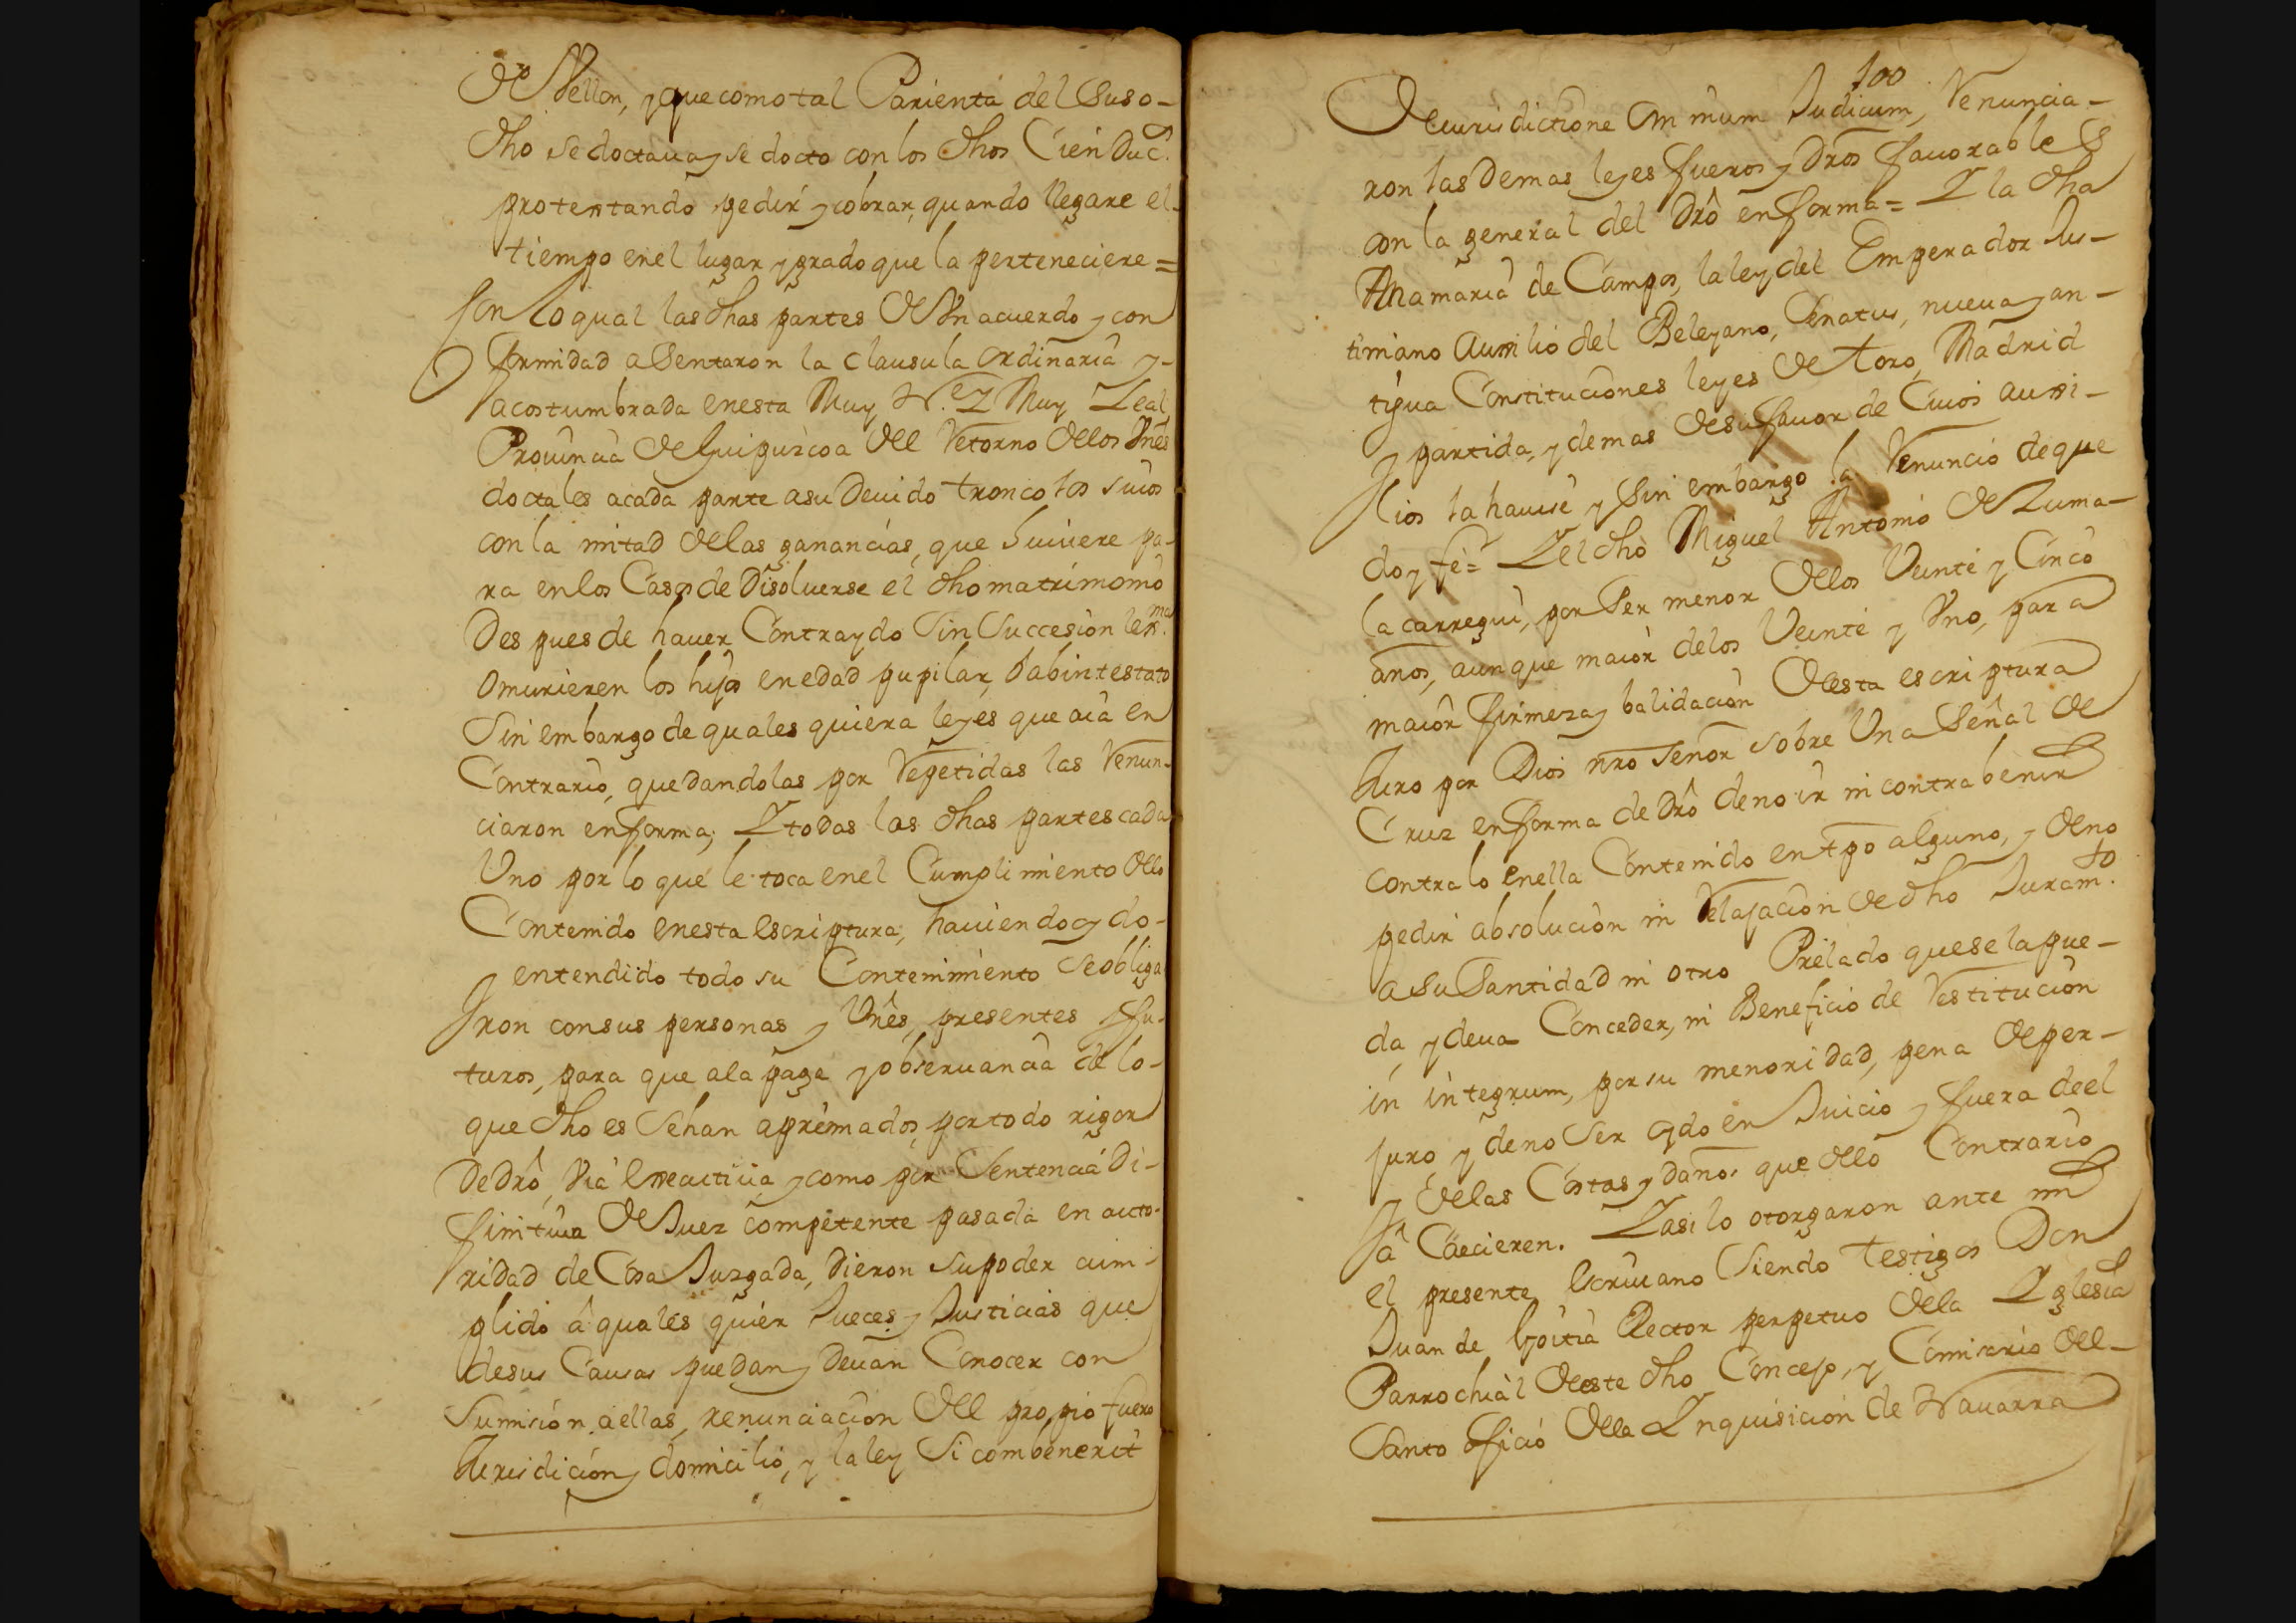 de Vellon, y que como tal Parienta del Suso-
dho se doctaua y se docto con los dhos Cien Duc.s
protentando pedir y cobrar, quando llegare el
tiempo en el lugar y grado que la perteneciere =
Con lo qual las dhas partes de Vn acuerdo y con
formidad aSentaron la Clausula ordinaria y-
acostumbrada en esta Muy N. e Y Muy Leal
Prouincia de Guipuzcoa del Retorno de los Vnes
doctales a cada parte a su Deuido tronco los suios
con la mitad de las ganancias, que huuiere pa-
ra en los Casos de Disoluerse el dho matrimonio
Despues de hauer Contraydo Sin Succesion lex.ma
O murieren los hijos en edad pupilar, o abintestato
Sin embargo de quales quiera leyes que aia en
Contrario, quedandolas por Repetidas las Renun-
ciaron en forma; Y todas las dhas partes cada
Uno por lo que le toca en el Cumplimiento de lo
Contenido en esta escriptura, hauiendo oydo-
y entendido todo su Contenimiento Se obliga
ron con sus personas y Vnes, presentes y fu-
turos, para que a la paga y obseruancia de lo-
que dho es Sehan apremados, por todo rigor
De Drô, Via executiua, y como por Sentencia Di-
finitiua de Juez competente pasada en aucto-
ridad de Cosa Juzgada, Dieron su poder cum-
plido â quales quier Jueces y Justicias que
de sus Causas puedan y Deuan Conocer con
Sumision a ellas, renunciacion del propio fuero
Jurisdicion y domicilio, y la ley Si combenerit
100
De iurisdictione omnium Judicum, Renuncia-
ron las Demas leyes fueros y Dros fauorables
con la general del Drô en forma = Y la dha
Ana maria de Campos, la ley del Emperador Jus-
tiniano Auxilio del Beleyano, Senatus, nueua y an-
tigua Constituciones leyes de Toro, Madrid
y partida, y demas de su fauor de Cuios auxi-
lios la hauisè y Sin embargo la Renunciò de que
doy fè = Y el dho Miguel Antonio de Zuma-
lacarregui, por Ser menor de los Veinte y Cinco
años, aunque maior de los Veinte y Vno, para
maior firmeza y balidacion de esta escriptura
Juro por Dios nro Señor sobre Una Señal de
Cruz en forma de Drô de no ir ni contrabenir
contra lo en ella Contenido en tpo alguno, y de no
pedir absolucion ni Relajacion de dho Juram.to
a su Santidad ni otro Prelado que se la pue-
da, y deua Conceder, ni Beneficio de Restitucion
in integrum, por su menoridad, pena de per-
juro, y de no Ser oydo en Juicio y fuera de el
y de las Costas y daños que de lo Contrario
â Caecieren. Y asi lo otorgaron ante mi
el presente Escriuano Siendo Testigos Don
Juan de Goitia Rector perpetuo de la Yglesia
Parrochial de este dho Concejo, y Comisario del-
Santo oficio de la Ynquisicion de Nauarra